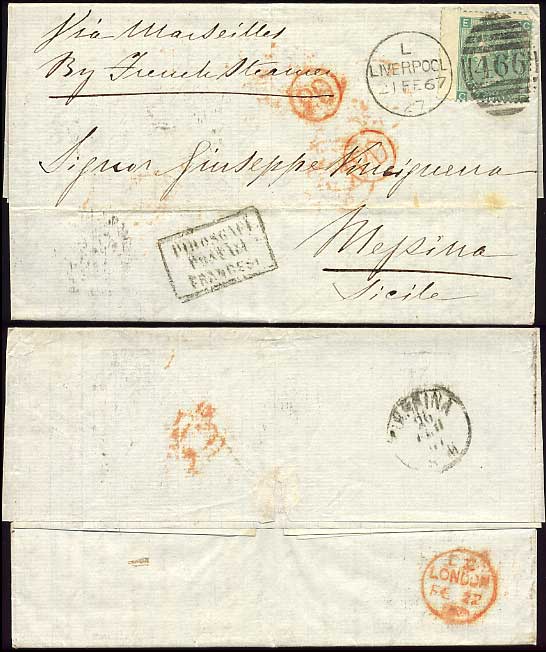 Via Marseilles
By French Steamer
L
LIVERPOOL
21 FE 67
27
E
G
466
PD
Signor Giuseppe Vinciguerra
Messina
Sicile
PIROSCAFI
POSTALI
FRANCESI
MESSINA
26
FEB
LONDON
FE 22